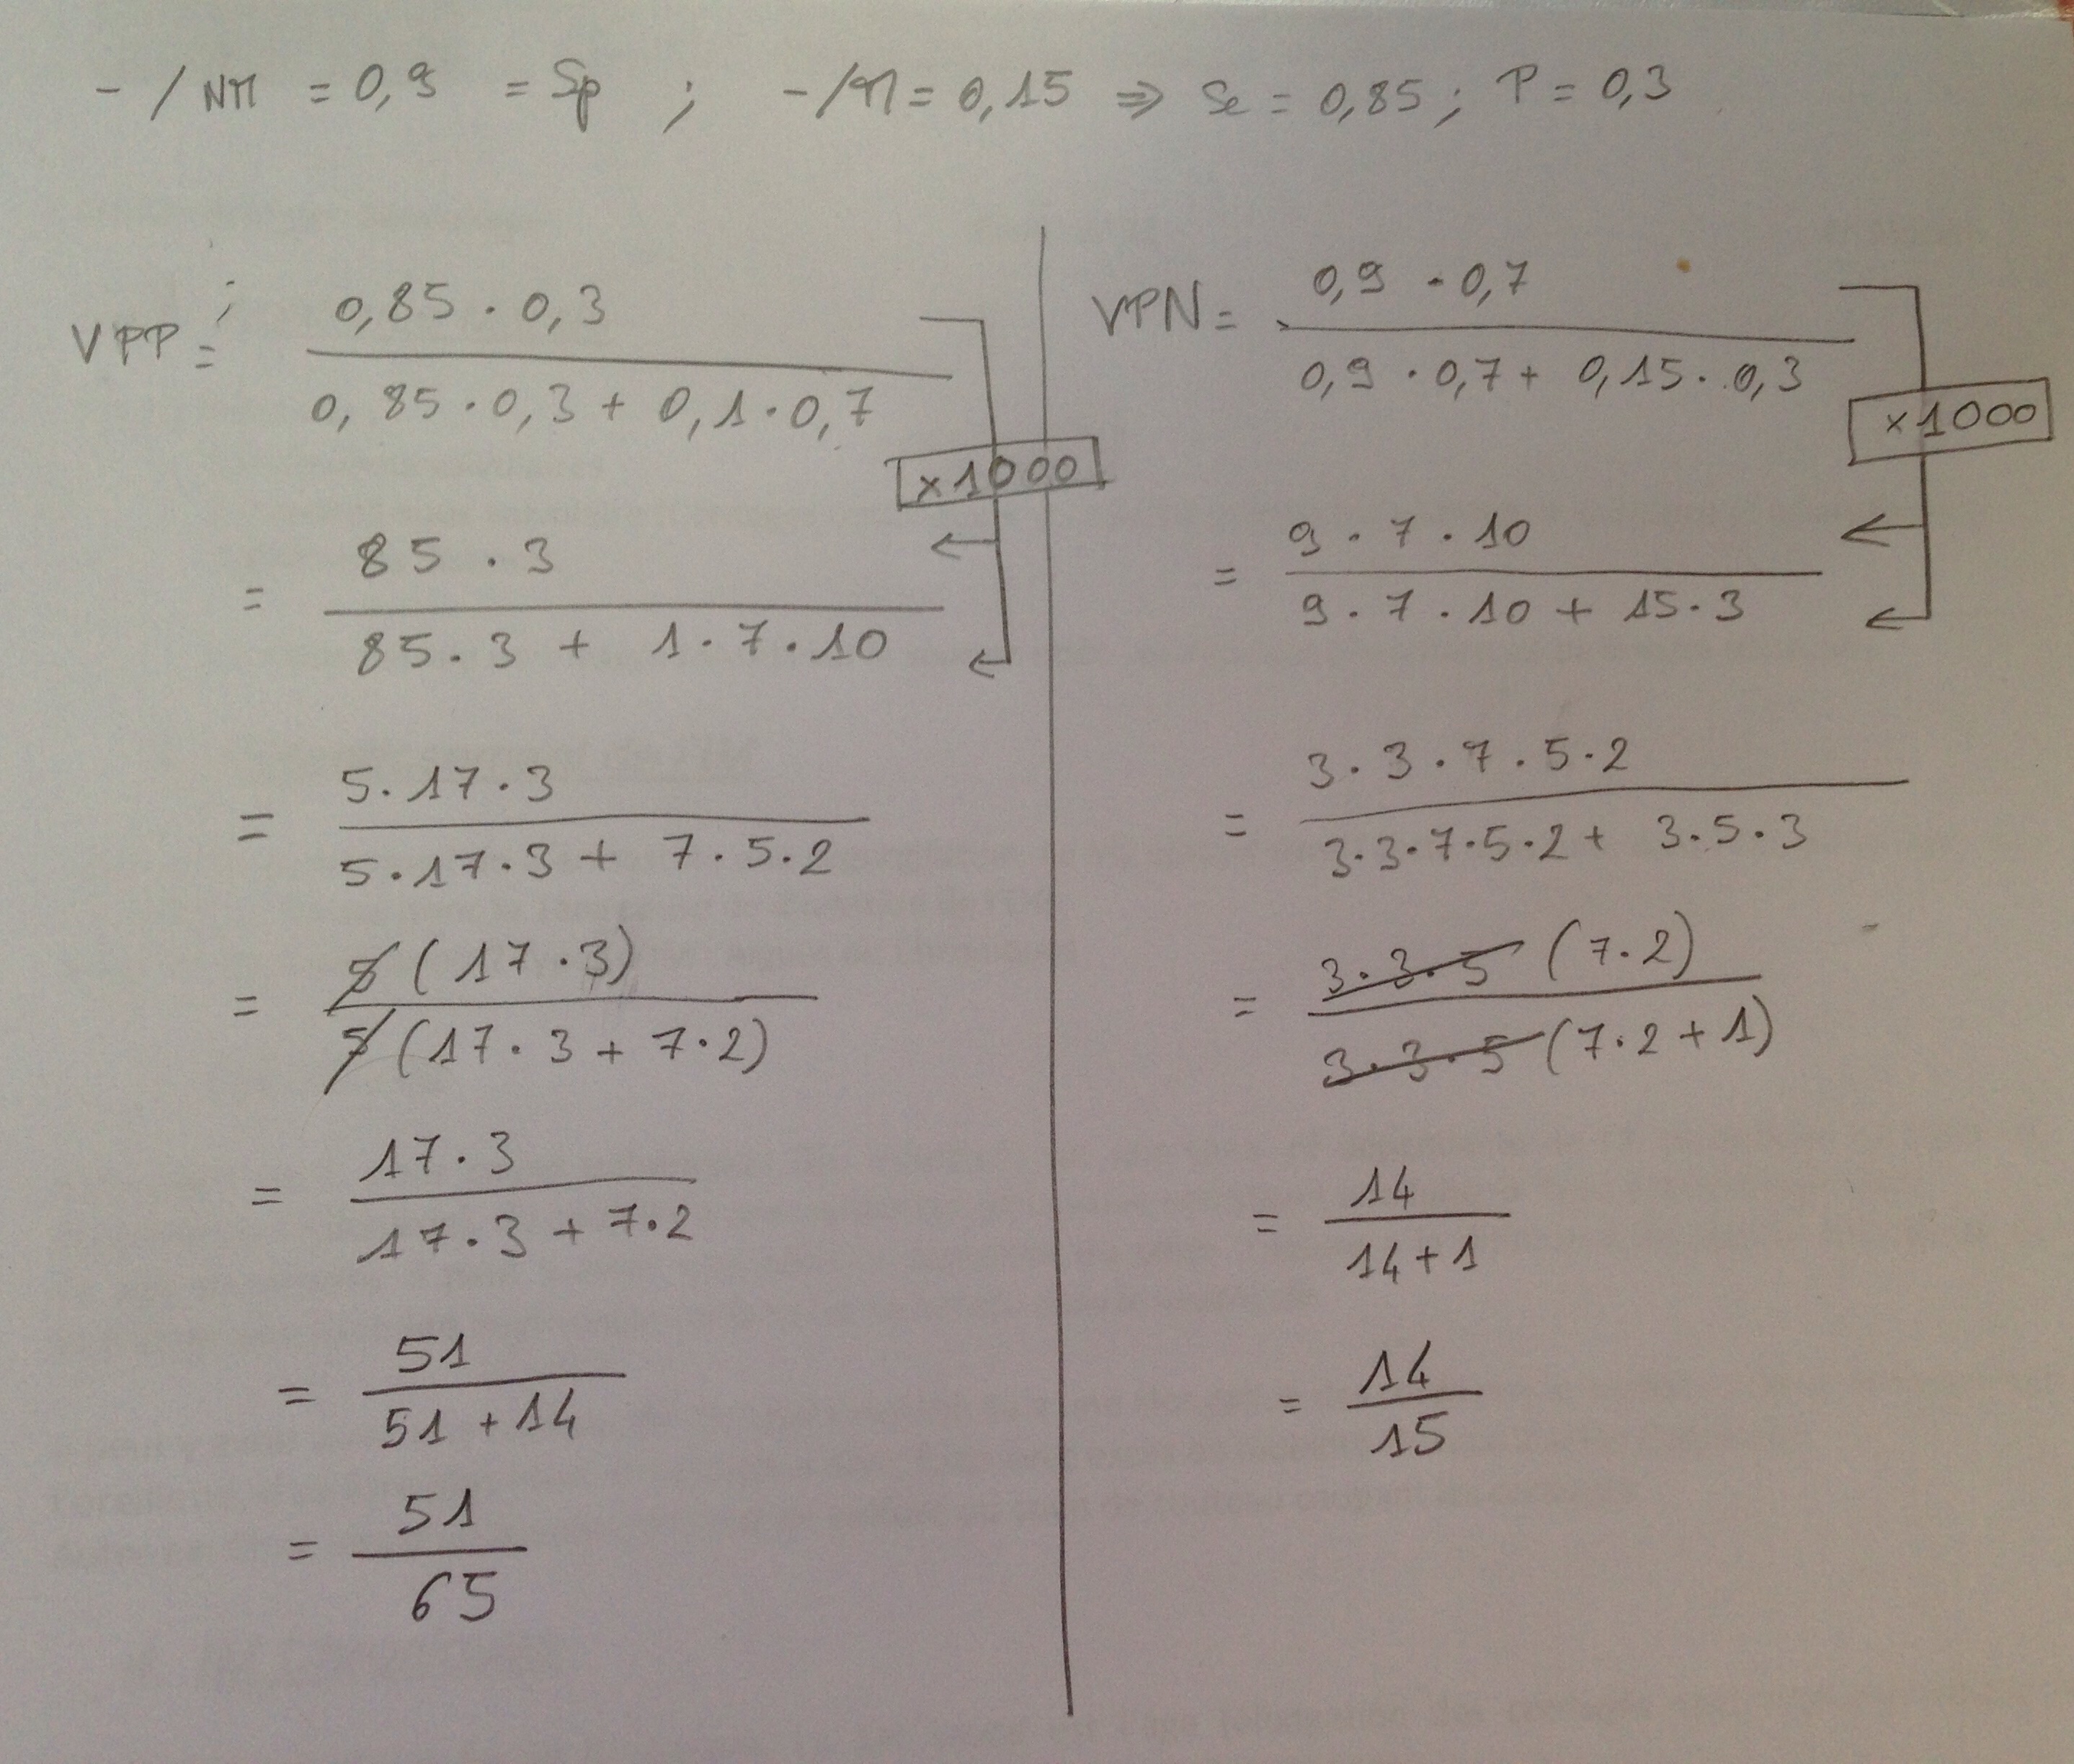 - / NM = 0,9 = Sp ; - /M = 0,15 ⇒ Se = 0,85 ; P = 0,3
VPP = 0,85 · 0,3
0,85 · 0,3 + 0,1 · 0,7
×1000
= 85 · 3
85 · 3 + 1 · 7 · 10
= 5 · 17 · 3
5 · 17 · 3 + 7 · 5 · 2
= 5 ( 17 · 3 )
5 ( 17 · 3 + 7 · 2 )
= 17 · 3
17 · 3 + 7 · 2
= 51
51 + 14
= 51
65
VPN = 0,9 · 0,7
0,9 · 0,7 + 0,15 · 0,3
×1000
= 9 · 7 · 10
9 · 7 · 10 + 15 · 3
= 3 · 3 · 7 · 5 · 2
3 · 3 · 7 · 5 · 2 + 3 · 5 · 3
= 3 · 3 · 5 ( 7 · 2 )
3 · 3 · 5 ( 7 · 2 + 1 )
= 14
14 + 1
= 14
15